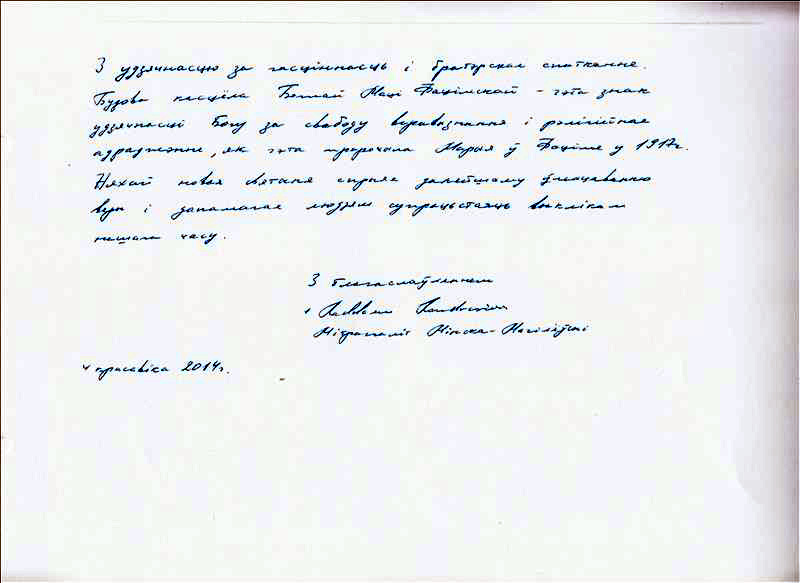 З удзячнасцю за гасціннасць і братэрскае спатканне.
Будова касцёла Божай Маці Фацімскай - гэта знак
удзячнасці Богу за свабоду веравызнання і рэлігійнае
адраджэнне, як гэта прарочыла Марыя ў Фаціме у 1917г.
Няхай новая святыня спрыяе далейшаму ўмацаванню
веры і дапамагае людзям супрацьстаяць выклікам
нашага часу.
З благаслаўленнем
Мітрапаліт Мінска-Магілёўскі
4 красавіка 2014г.